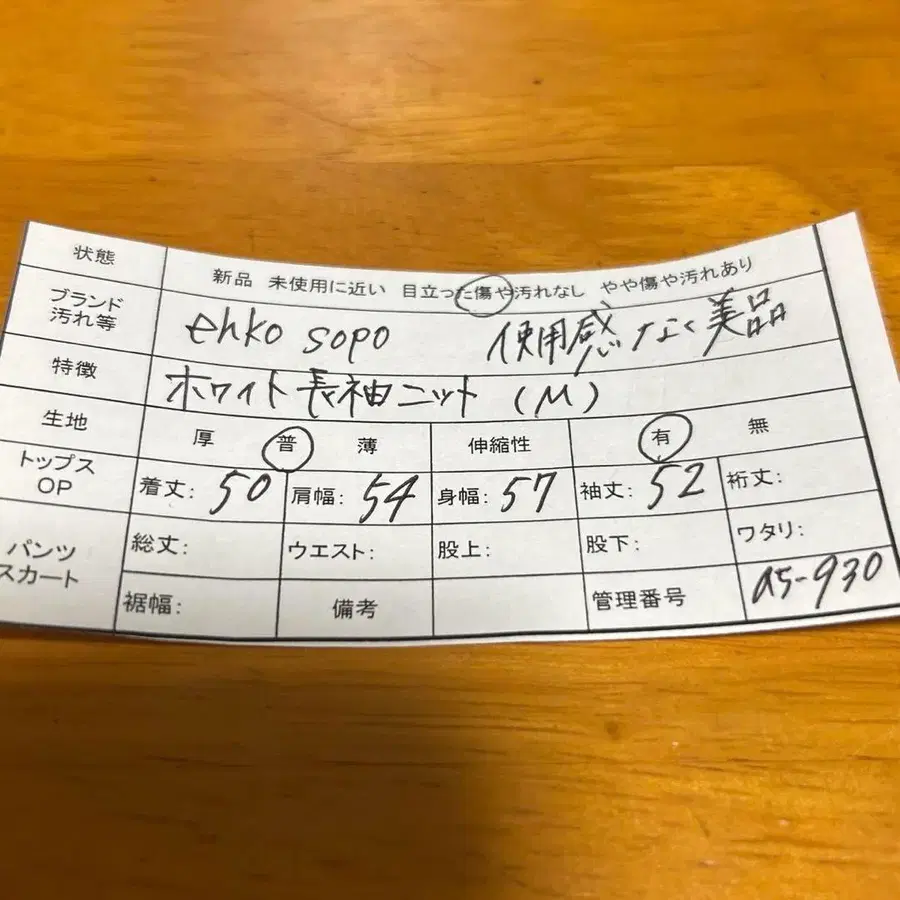 状態 新品 未使用に近い 目立った傷や汚れなし やや傷や汚れあり
ブランド 汚れ等 ehko sopo 使用感なく美品
特徴 ホワイト長袖ニット (M)
生地 厚 普 薄 伸縮性 有 無
トップス OP 着丈: 50 肩幅: 54 身幅: 57 袖丈: 52 裄丈:
パンツ スカート 総丈: ウエスト: 股上: 股下: ワタリ:
裾幅: 備考 管理番号 a5-930